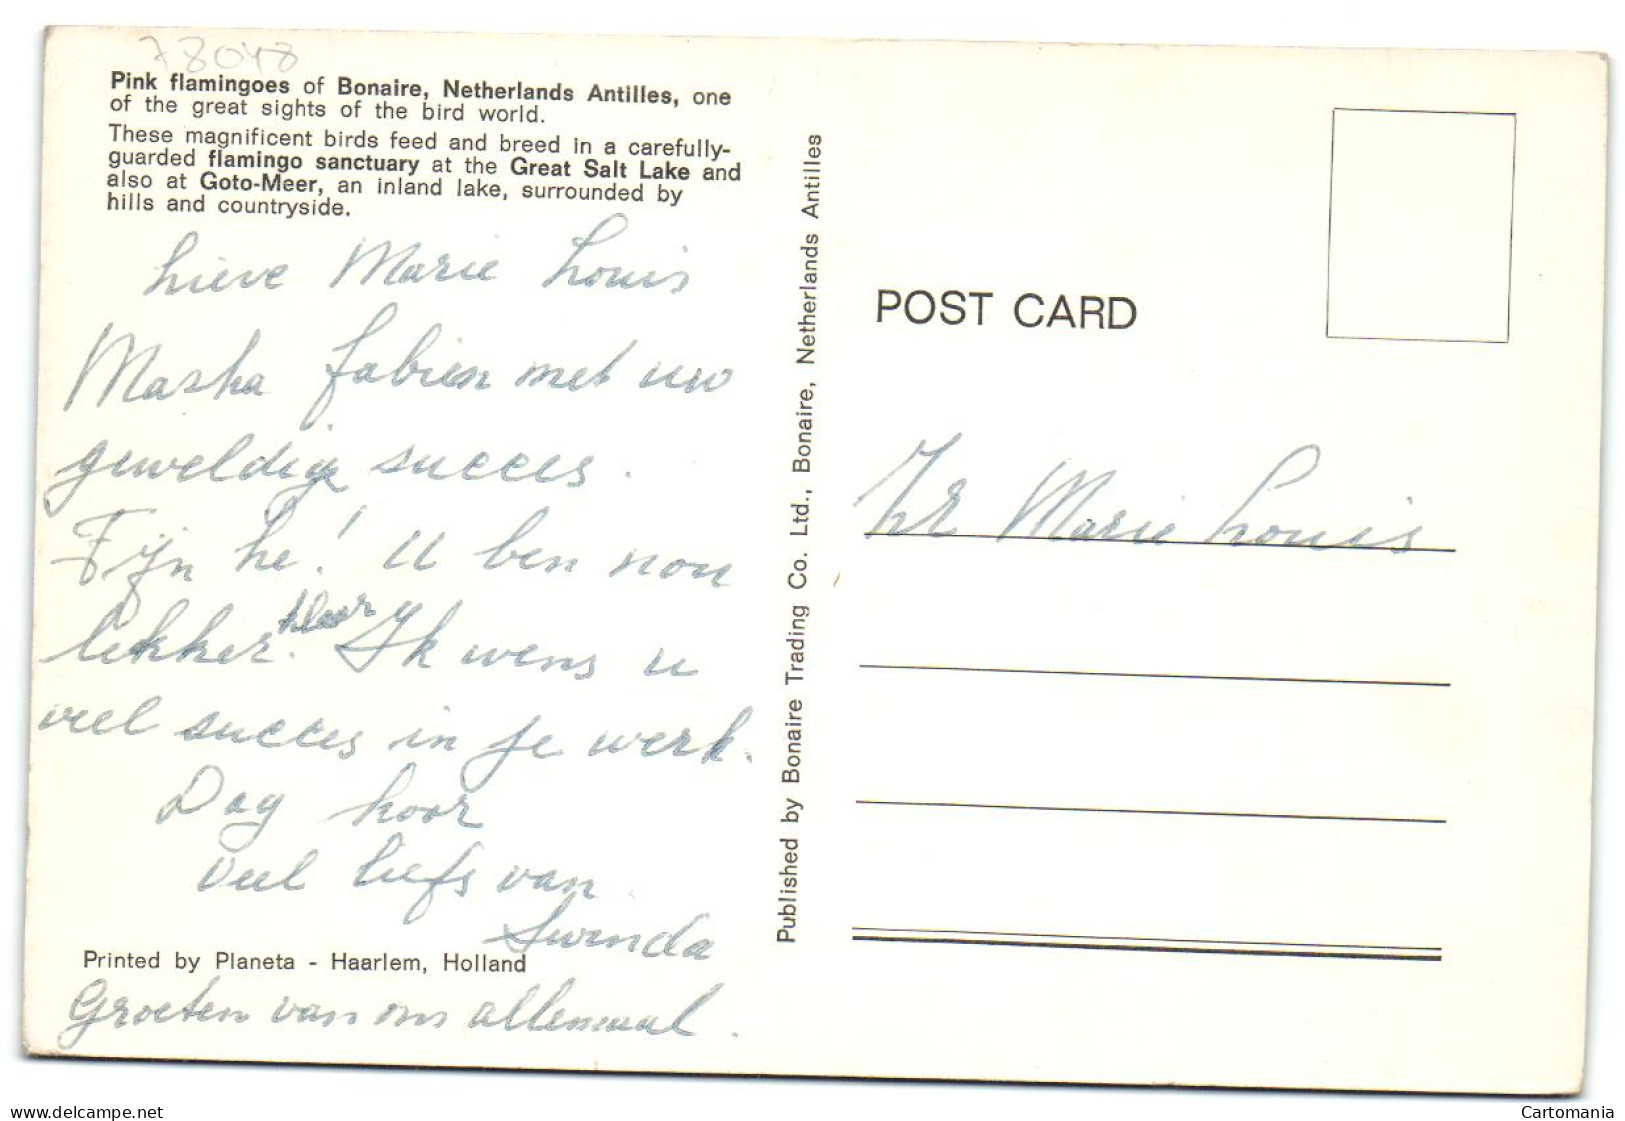 78048
Pink flamingoes of Bonaire, Netherlands Antilles, one
of the great sights of the bird world.
These magnificent birds feed and breed in a carefully-
guarded flamingo sanctuary at the Great Salt Lake and
also at Goto-Meer, an inland lake, surrounded by
hills and countryside.
Lieve Marie Louis
Masha fabien met uw
geweldig succes.
Fijn he! U ben nou
lekker klaar. Ik wens u
veel succes in je werk.
Dag hoor
veel liefs van
Swinda
Printed by Planeta - Haarlem, Holland
Groeten van ons allemaal.
Published by Bonaire Trading Co. Ltd., Bonaire, Netherlands Antilles
POST CARD
Zr Marie Louis
www.delcampe.net
Cartomania